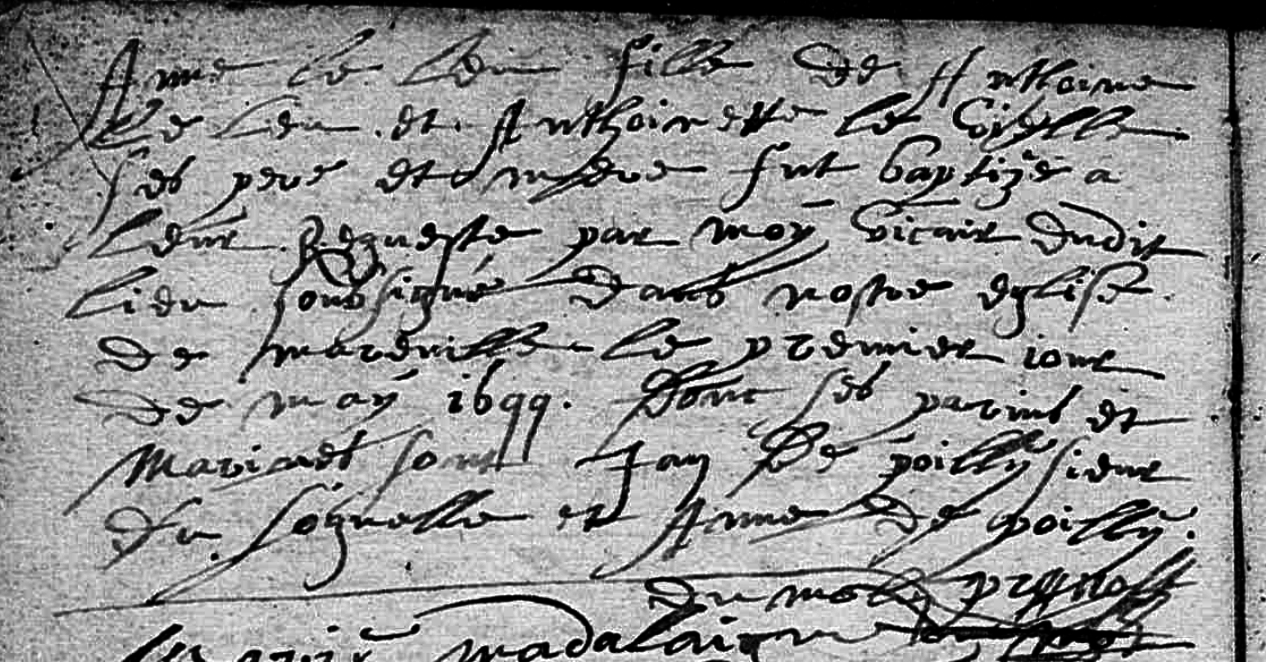 Anne le Leu fille de Anthoine
Le Leu et Anthoinette le
ses pere et mere fut baptizé a
leur Requeste par moy vicair dudit
lieu soubsigné dans nostre eglise
de mareville le premier iour
de may 1699. Dont ses parins et
Marines sont Jan De poilly sieur
du et Anne de poilly.
madalaine